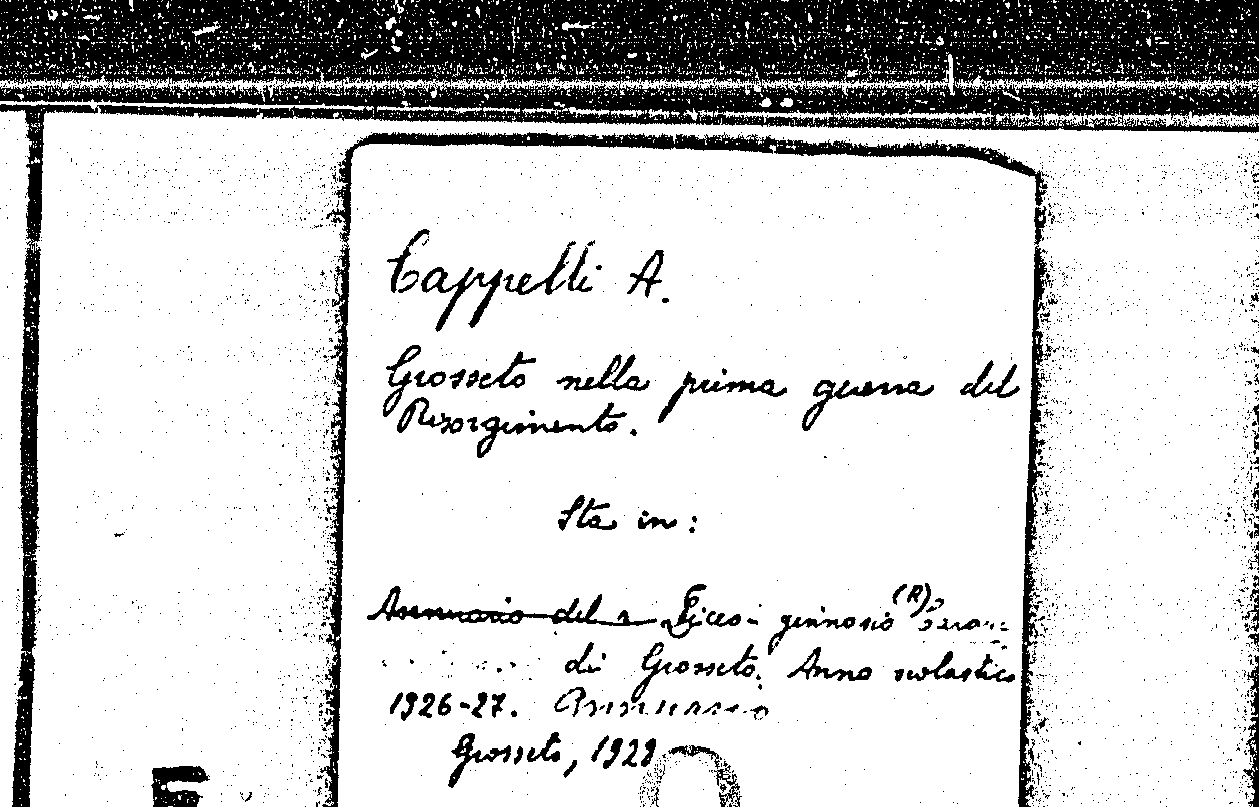 Cappelli A.
Grosseto nella prima guerra del
Risorgimento.
Sta in:
Annuario del r. Liceo-ginnasio (R)
di Grosseto. Anno scolastico
1926-27. Annuario
Grosseto, 1928